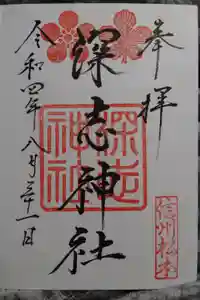 奉拝
深志神社
深志神社
信州松本
令和四年八月三十一日